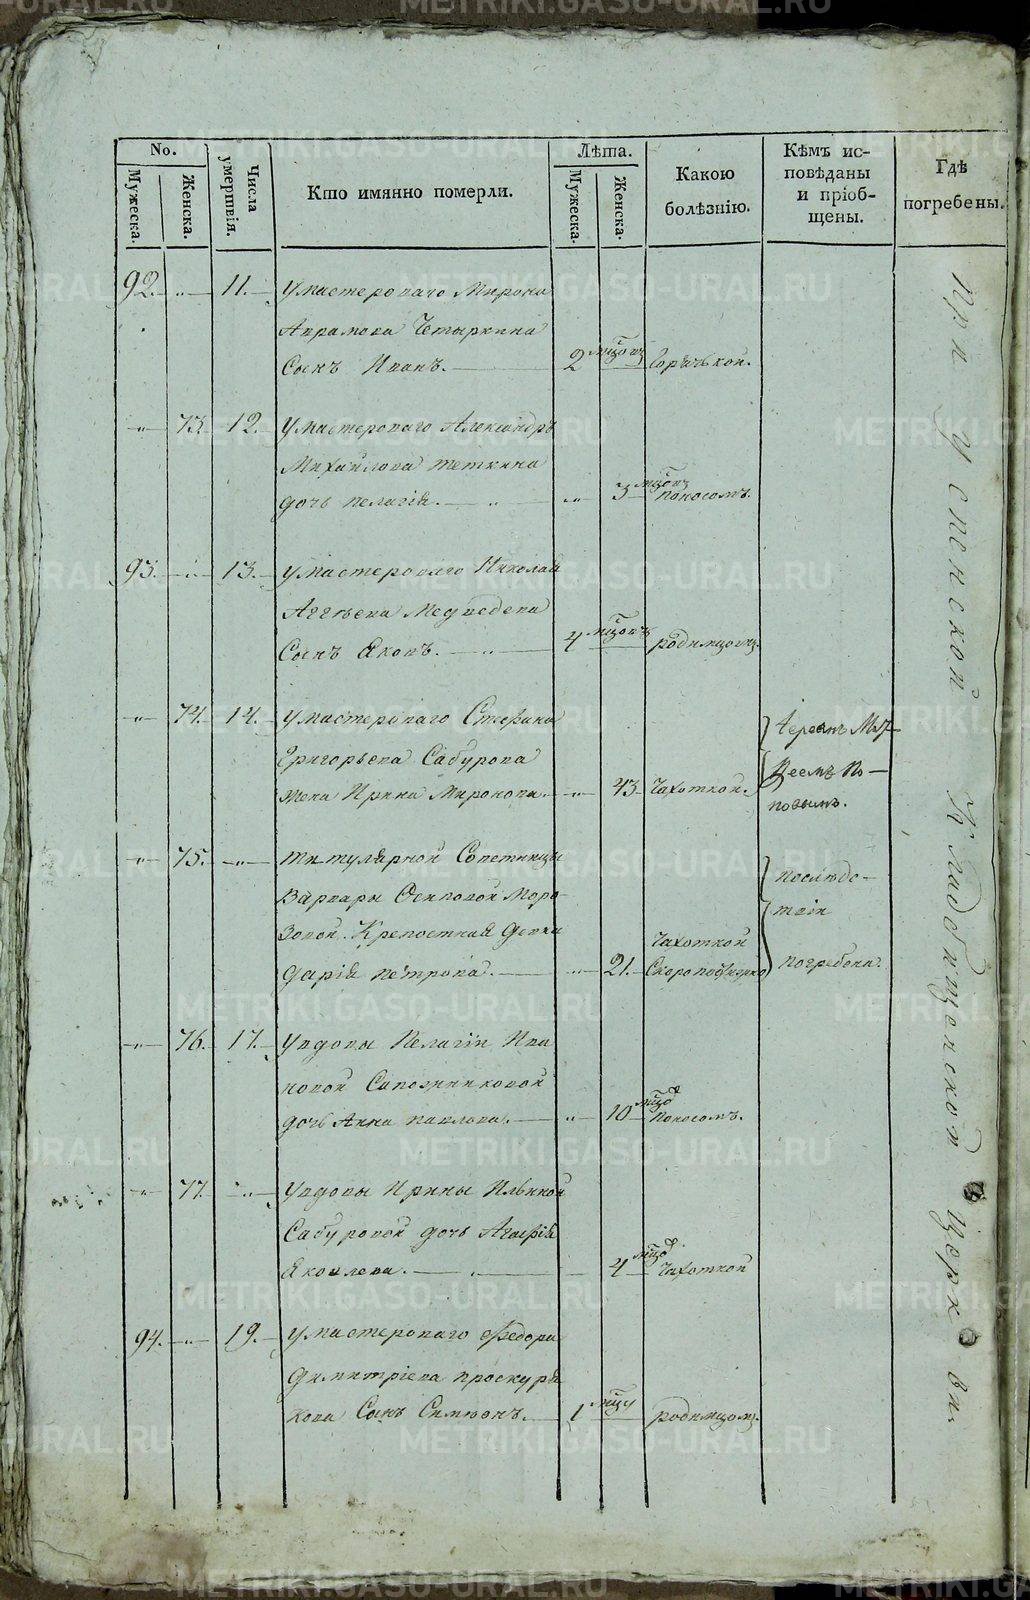 No.
Мужеска.
Женска.
Числа умертвія.
Кто имянно померли.
Лѣта.
Мужеска.
Женска.
Какою
болѣзнію.
Кѣмъ ис-
повѣданы
и пріоб-
щены.
Гдѣ
погребены.
92. „ 11. Умастероваго Мирона
Аврамова Четыркина
Сынъ Иванъ. 2 мцовъ Горячькой.
„ 73. 12. Умастероваго Александръ
Михайлова Теткина
дочь Пелагія. „ 3 мцовъ Поносомъ.
93. „ 13. Умастероваго Николая
Аггѣева Медведева
Сынъ Яковъ. „ 4 мцовъ родимцомъ.
„ 74. 14. Умастероваго Стефана
Григорьева Сабурова
жена Ирина Миронова. „ 43. Чахоткой.
Іереомъ Мат-
веемъ По-
повымъ.
„ 75. „ Титулярной Советницы
Варвары Осиповой Моро-
зовой Крепостная девка
Дарія Петрова. „ 21. Чахоткой
Скоропостижно
Послѣдс-
твіи
погребена.
„ 76. 17. Увдовы Пелагіи Ива
новой Сапожниковой
дочь Анна Павлова. „ 10 мцов Поносомъ.
„ 77. „ Увдовы Ирины Ильиной
Сабуровой дочь Агафія
Яковлева. 4 мцов Чахоткой
94. „ 19. Умастероваго Федора
Димитріева Проскуря
кова Сынъ Симеонъ. 1 мцу родимцомъ.
При успенской Кладбищенской Церкови.
METRIKI.GASO-URAL.RU